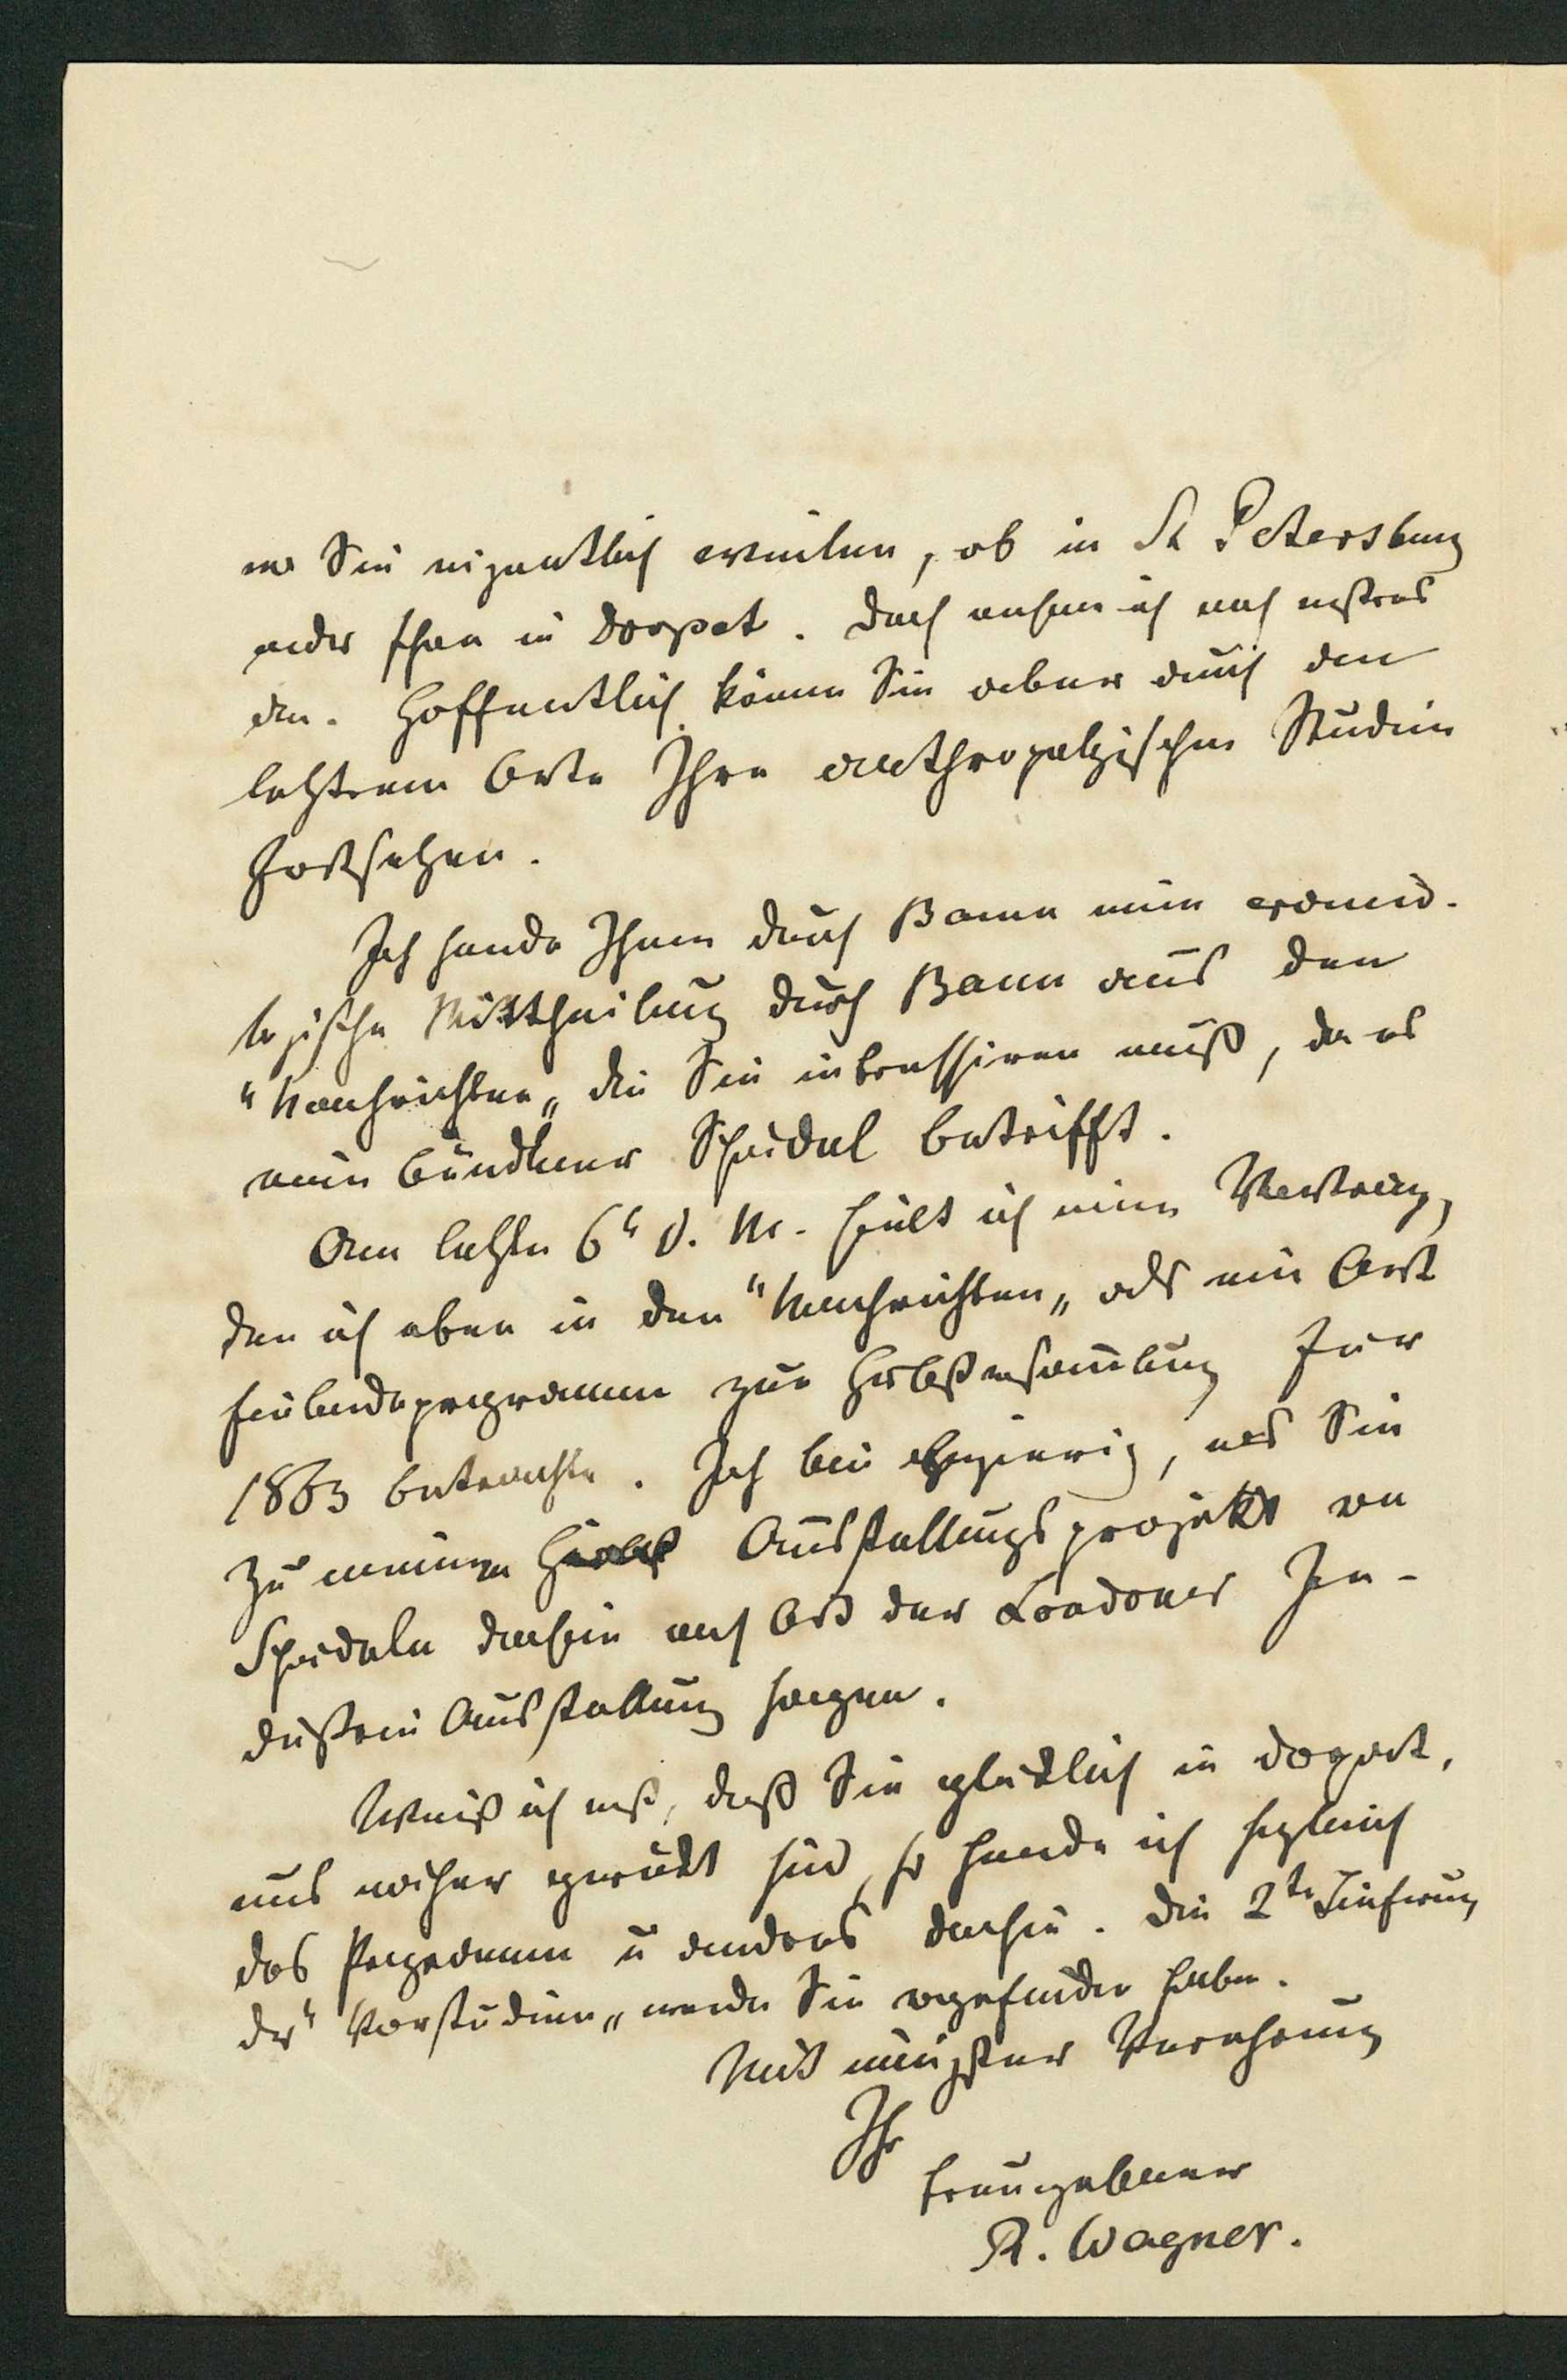 wo Sie eigentlich weilen, ob in St Petersburg
oder schon in Dorpat. Doch nehme ich noch erstres
an. Hoffentlich können Sie aber auch an
letztrem Orte Ihre anthropologischen Studien
fortsetzen.
Ich sende Ihnen durch Baer meine cranio-
logische Mittheilung durch aus den
"Nachrichten" die Sie interessiren muß, da es
ein Bündtner Schädel betrifft.
Am letzten 6t d. M. hielt ich einen Vortrag,
den ich eben in den "Nachrichten" als eine Art
Einladeprogramm zur Herbstversammlung für
1863 betrachte. Ich bin begierig, was Sie
zu meinem Ausstellungsprojekt von
Schädeln dahin nach Art der Londoner In-
dustrie Ausstellung sagen.
Weiß ich erst, daß Sie glücklich in Dorpat,
uns näher gerückt sind, so sende ich sogleich
das Programm u andres dahin. Die 2te Lieferung
der "Vorstudien" werden Sie vorgefunden haben.
Mit innigster Verehrung
Ihr
treuergebener
R. Wagner.